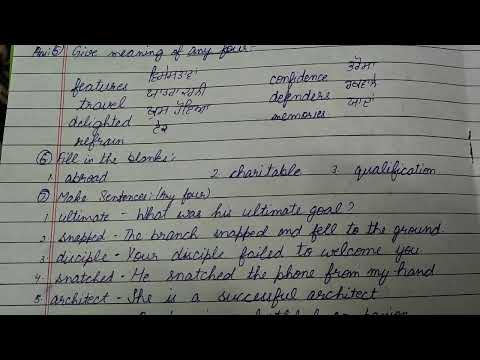 Ans:5) Give meaning of any four:-
features ਵਿਸ਼ੇਸ਼ਤਾਵਾਂ confidence ਭਰੋਸਾ
travel ਯਾਤਰਾ ਕਰਨੀ defenders ਰਖਵਾਲੇ
delighted ਖੁਸ਼ ਹੋਇਆ memories ਯਾਦਾਂ
refrain ਟੇਕ
6) Fill in the blanks:
1. abroad 2. charitable 3. qualification
7) Make Sentences: (Any four)
1 ultimate - What was his ultimate goal?
2 snapped - The branch snapped and fell to the ground.
3 disciple - Your disciple failed to welcome you.
4 snatched - He snatched the phone from my hand
5 architect - She is a successful architect